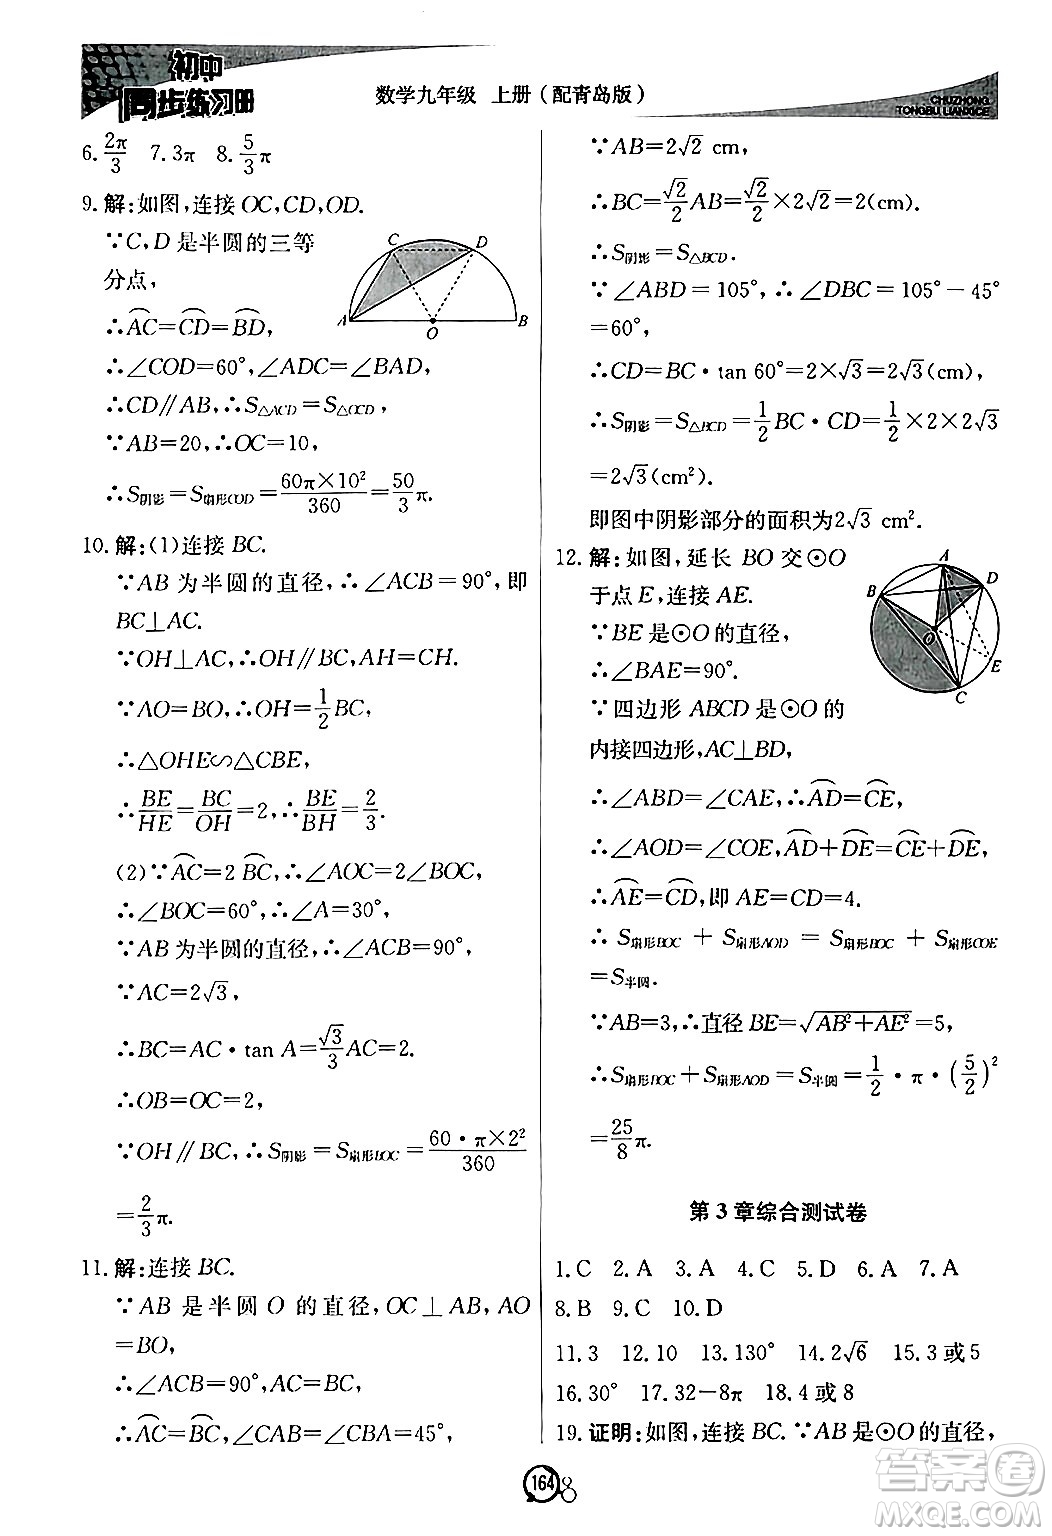 初中
同步练习册
数学九年级 上册(配青岛版)
CHUZHONG
TONGBU LIANXICE
6.2π/3 7.3π 8.5/3π
9.解:如图,连接OC,CD,OD.
∵C,D是半圆的三等
分点,
∴⌒AC=⌒CD=⌒BD,
∴∠COD=60°,∠ADC=∠BAD,
∴CD∥AB,∴S△ACD=S△OCD,
∵AB=20,∴OC=10,
∴S阴影=S扇形COD=60π×10²/360=50/3π.
C D
A O B
10.解:(1)连接BC.
∵AB为半圆的直径,∴∠ACB=90°,即
BC⊥AC.
∵OH⊥AC,∴OH∥BC,AH=CH.
∵AO=BO,∴OH=1/2BC,
∴△OHE∽△CBE,
∴BE/HE=BC/OH=2,∴BE/BH=2/3.
(2)∵⌒AC=2⌒BC,∴∠AOC=2∠BOC,
∴∠BOC=60°,∴∠A=30°,
∵AB为半圆的直径,∴∠ACB=90°,
∵AC=2√3,
∴BC=AC·tan A=√3/3AC=2.
∴OB=OC=2,
∵OH∥BC,∴S阴影=S扇形BOC=60·π×2²/360
=2/3π.
11.解:连接BC.
∵AB是半圆O的直径,OC⊥AB,AO
=BO,
∴∠ACB=90°,AC=BC,
∴⌒AC=⌒BC,∠CAB=∠CBA=45°,
∵AB=2√2 cm,
∴BC=√2/2AB=√2/2×2√2=2(cm).
∴S阴影=S△BCD.
∵∠ABD=105°,∴∠DBC=105°-45°
=60°,
∴CD=BC·tan 60°=2×√3=2√3(cm),
∴S阴影=S△BCD=1/2BC·CD=1/2×2×2√3
=2√3(cm²).
即图中阴影部分的面积为2√3 cm².
12.解:如图,延长BO交⊙O
于点E,连接AE.
∵BE是⊙O的直径,
∴∠BAE=90°.
∵四边形ABCD是⊙O的
内接四边形,AC⊥BD,
∴∠ABD=∠CAE,∴⌒AD=⌒CE,
∴∠AOD=∠COE,⌒AD+⌒DE=⌒CE+⌒DE,
∴⌒AE=⌒CD,即AE=CD=4.
∴S扇形BOC+S扇形AOD=S扇形BOC+S扇形COE
=S半圆.
∵AB=3,∴直径BE=√(AB²+AE²)=5,
∴S扇形BOC+S扇形AOD=S半圆=1/2·π·(5/2)²
=25/8π.
A
B D
O
E
C
第3章综合测试卷
1.C 2.A 3.A 4.C 5.D 6.A 7.A
8.B 9.C 10.D
11.3 12.10 13.130° 14.2√6 15.3或5
16.30° 17.32-8π 18.4或8
19.证明:如图,连接BC.∵AB是⊙O的直径,
164
答案圈
MXQE.COM